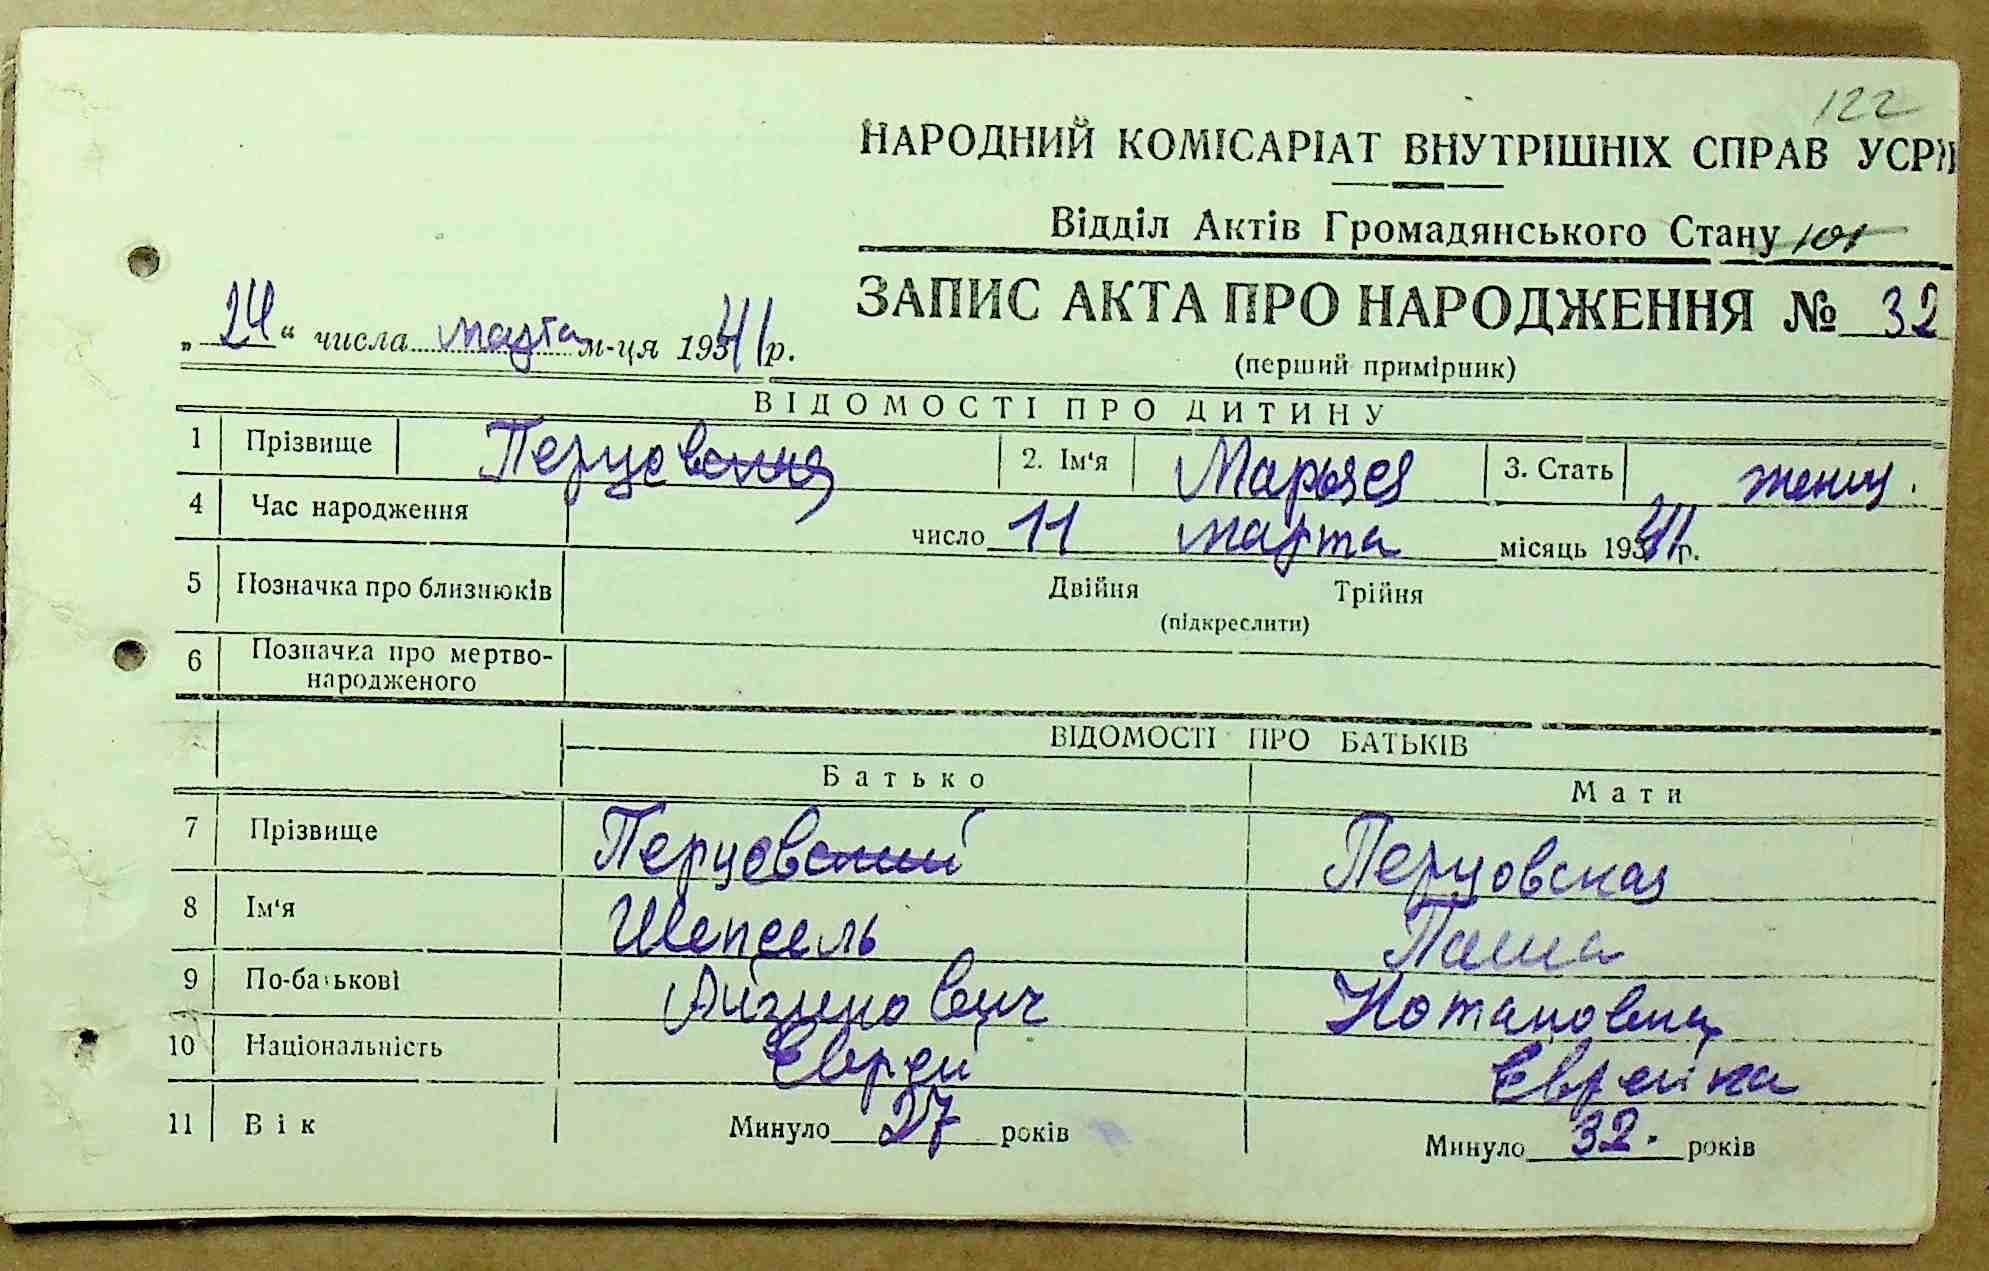 122
НАРОДНИЙ КОМІСАРІАТ ВНУТРІШНІХ СПРАВ УСРР
Відділ Актів Громадянського Стану 101
ЗАПИС АКТА ПРО НАРОДЖЕННЯ № 32
„24“ числа марта м-ця 1941 р.
(перший примірник)
ВІДОМОСТІ ПРО ДИТИНУ
1 Прізвище Перцовская 2. Ім‘я Марьяя 3. Стать женщ.
4 Час народження число 11 марта місяць 1941 р.
5 Позначка про близнюків Двійня Трійня
(підкреслити)
6 Позначка про мертво-
народженого
ВІДОМОСТІ ПРО БАТЬКІВ
Батько Мати
7 Прізвище Перцовский Перцовская
8 Ім‘я Шепсель Паша
9 По-батькові Нотановна
10 Національність Еврей Еврейка
11 Вік Минуло 27 років Минуло 32. років